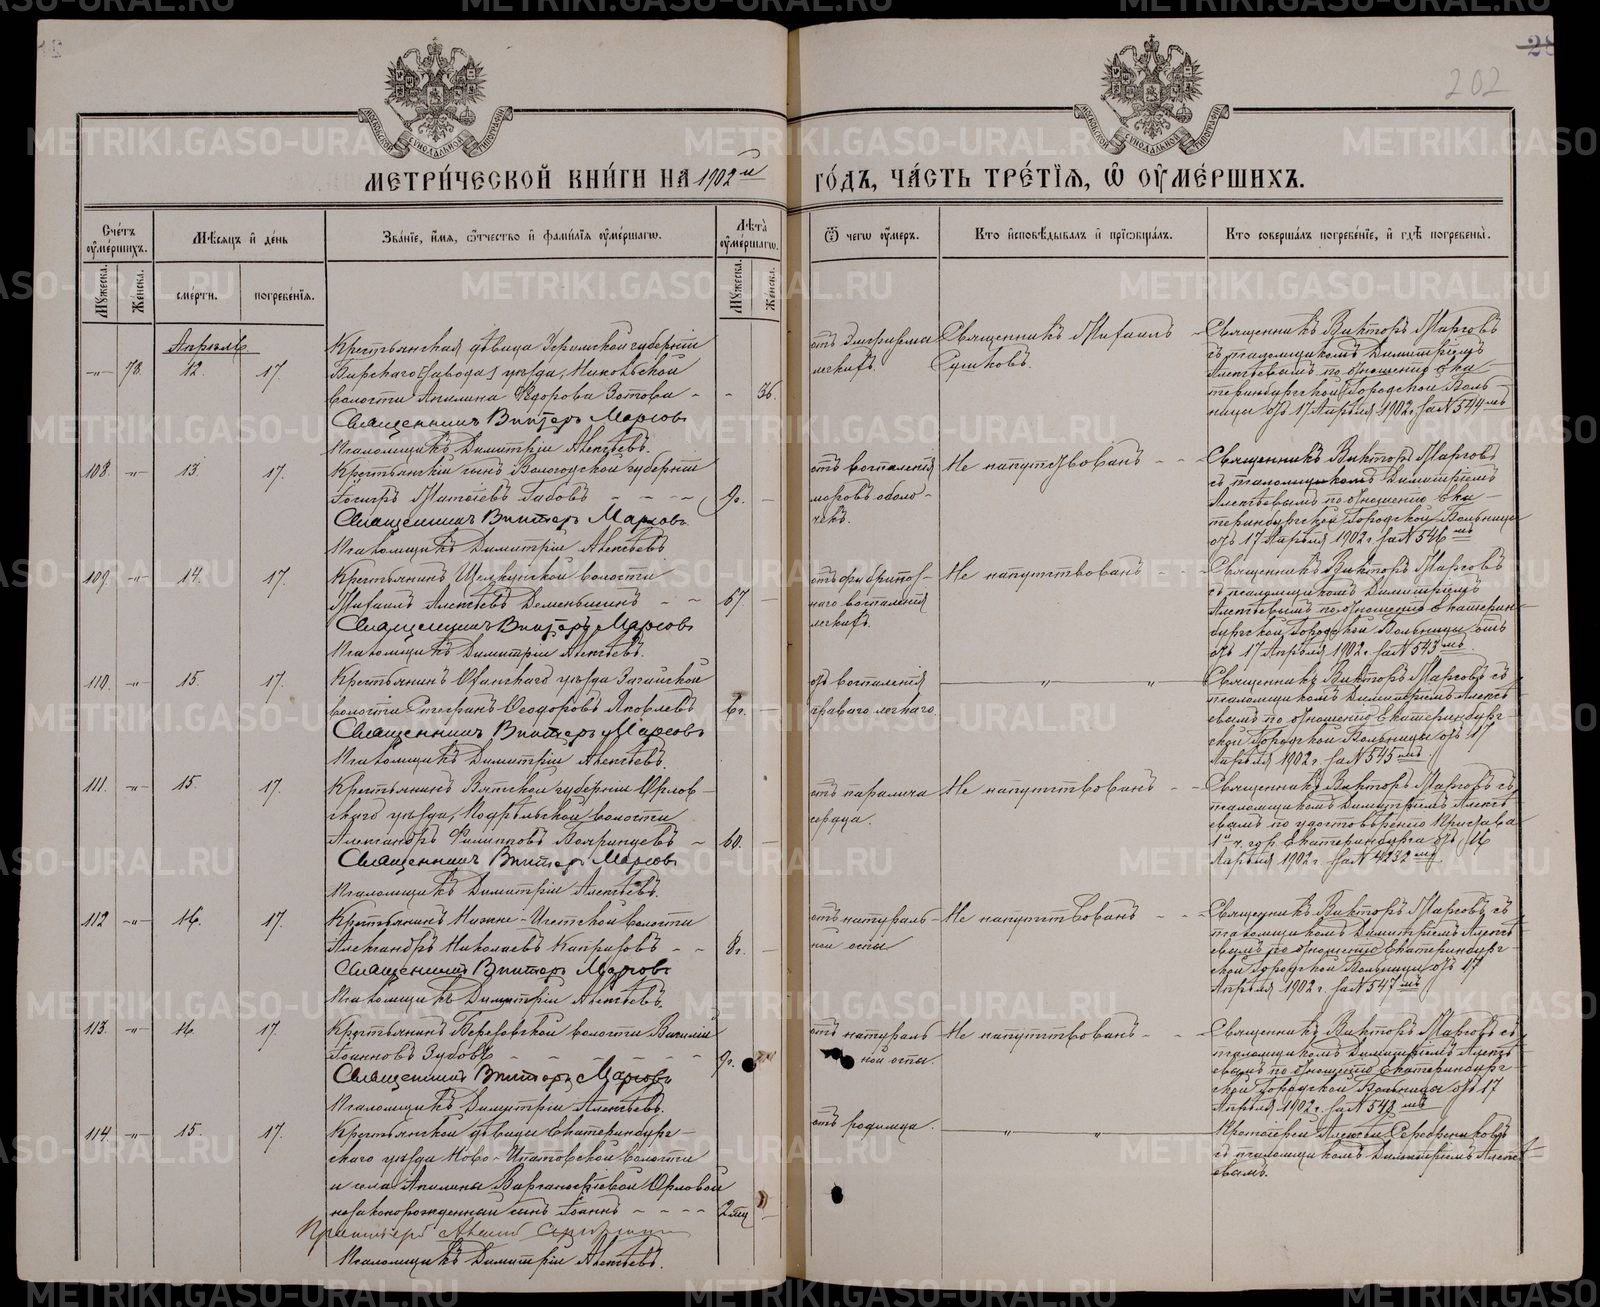 202
МОСКОВСКОЙ СѴНОДАЛЬНОЙ ТИПОГРАФІИ
МОСКОВСКОЙ СѴНОДАЛЬНОЙ ТИПОГРАФІИ
МЕТРИ́ЧЕСКОЙ КНИ́ГИ НА 1902й ГО́ДЪ, ЧА́СТЬ ТРЕ́ТІѦ, Ѡ҆ ОУ҆МЕ́РШИХЪ.
Счетъ оумершихъ.
Мужеска.
Женска.
Мѣсяцъ и день
смерти.
погребенія.
Званіе, имя, отчество и фамилія оумершаго.
Лѣта оумершаго.
Мужеска.
Женска.
Ѿ чего оумеръ.
Кто исповѣдывалъ и пріобщалъ.
Кто совершалъ погребеніе, и гдѣ погребены.
Апрѣль
-„- 78. 12. 17.
Крестьянская дѣвица Уфимской губерніи
Бирскаго [завода] уѣзда, Никольской
волости Акилина Ѳедорова Зотова - - 36.
Священникъ Викторъ Марсовъ
Псаломщикъ Димитрій Алексѣевъ.
отъ эмфиземы
легкихъ.
Священникъ Михаилъ
Сушковъ.
Священникъ Викторъ Марсовъ
съ псаломщикомъ Димитріемъ
Алексѣевымъ по отношенію Ека-
теринбургской Городской Боль-
ницы отъ 17 Апрѣля 1902 г. за № 544мъ
108. -„- 13. 17.
Крестьянскій сынъ Вологодской губерніи
Матѳіевъ Габовъ - - - 9г. -
Священникъ Викторъ Марсовъ
Псаломщикъ Димитрій Алексѣевъ
отъ воспаленія
мозговъ оболо-
чекъ.
Не напутствованъ - -
Священникъ Викторъ Марсовъ
съ псаломщикомъ Димитріемъ
Алексѣевымъ по отношенію Ека-
теринбургской Городской Больницы
отъ 17 Апрѣля 1902 г. за № 546мъ
109. -„- 14. 17.
Крестьянинъ Щелкунской волости
Михаилъ Алексѣевъ Деменьшинъ - - 67. -
Священникъ Викторъ Марсовъ
Псаломщикъ Димитрій Алексѣевъ.
отъ фибриноз-
наго воспаленія
легкихъ.
Не напутствованъ - -
Священникъ Викторъ Марсовъ
съ псаломщикомъ Димитріемъ
Алексѣевымъ по отношенію Екатерин-
бургской Городской Больницы отъ
отъ 17 Апрѣля 1902 г. за № 543мъ.
110. -„- 15. 17.
Крестьянинъ Оханскаго уѣзда
волости Ѳеодоровъ Яковлевъ 6г. -
Священникъ Викторъ Марсовъ
Псаломщикъ Димитрій Алексѣевъ.
отъ воспаленія
праваго легкаго.
„ „
Священникъ Викторъ Марсовъ съ
псаломщикомъ Димитріемъ Алексѣ-
евымъ по отношенію Екатеринбург-
ской Городской Больницы отъ 17
Апрѣля 1902 г. за № 545мъ
111. -„- 15. 17.
Крестьянинъ Вятской губерніи Орлов-
скаго уѣзда, Подрѣльской волости
Александръ Филипповъ - 60. -
Священникъ Викторъ Марсовъ
Псаломщикъ Димитрій Алексѣевъ.
отъ паралича
сердца.
Не напутствованъ - -
Священникъ Викторъ Марсовъ съ
псаломщикомъ Димитріемъ Алексѣ-
евымъ по удостовѣренію Пристава
1й ч. гор. Екатеринбурга отъ 16
Апрѣля 1902 г. за № 4232мъ.
112 -„- 16. 17.
Крестьянинъ Нижне-Исетской волости
Александръ Николаевъ - - 8г. -
Священникъ Викторъ Марсовъ
Псаломщикъ Димитрій Алексѣевъ.
отъ натураль-
ной оспы
Не напутствованъ - -
Священникъ Викторъ Марсовъ съ
псаломщикомъ Димитріемъ Алексѣ-
евымъ по отношенію Екатеринбург-
ской Городской Больницы отъ 17
Апрѣля 1902 г. за № 547мъ
113. -„- 16. 17.
Крестьянинъ Березовской волости Василій
Іоанновъ Зубовъ - - - 9г.
Священникъ Викторъ Марсовъ
Псаломщикъ Димитрій Алексѣевъ.
отъ натураль-
ной оспы.
Не напутствованъ - -
Священникъ Викторъ Марсовъ съ
псаломщикомъ Димитріемъ Алексѣ-
евымъ по отношенію Екатеринбург-
ской Городской Больницы отъ 17
Апрѣля 1902 г. за № 542мъ
114. -„- 15. 17.
Крестьянской дѣвицы Екатеринбург-
скаго уѣзда Ново-Ипатовской волости
и села Акилины Орловой
незаконорожденный сынъ Іоаннъ - - - 2 мц
Протоіерей Алексій
Псаломщикъ Димитрій Алексѣевъ.
отъ родимца.
„ „
Протоіерей Алексій
съ псаломщикомъ Димитріемъ Алексѣ-
евымъ.
METRIKI.GASO-URAL.RU